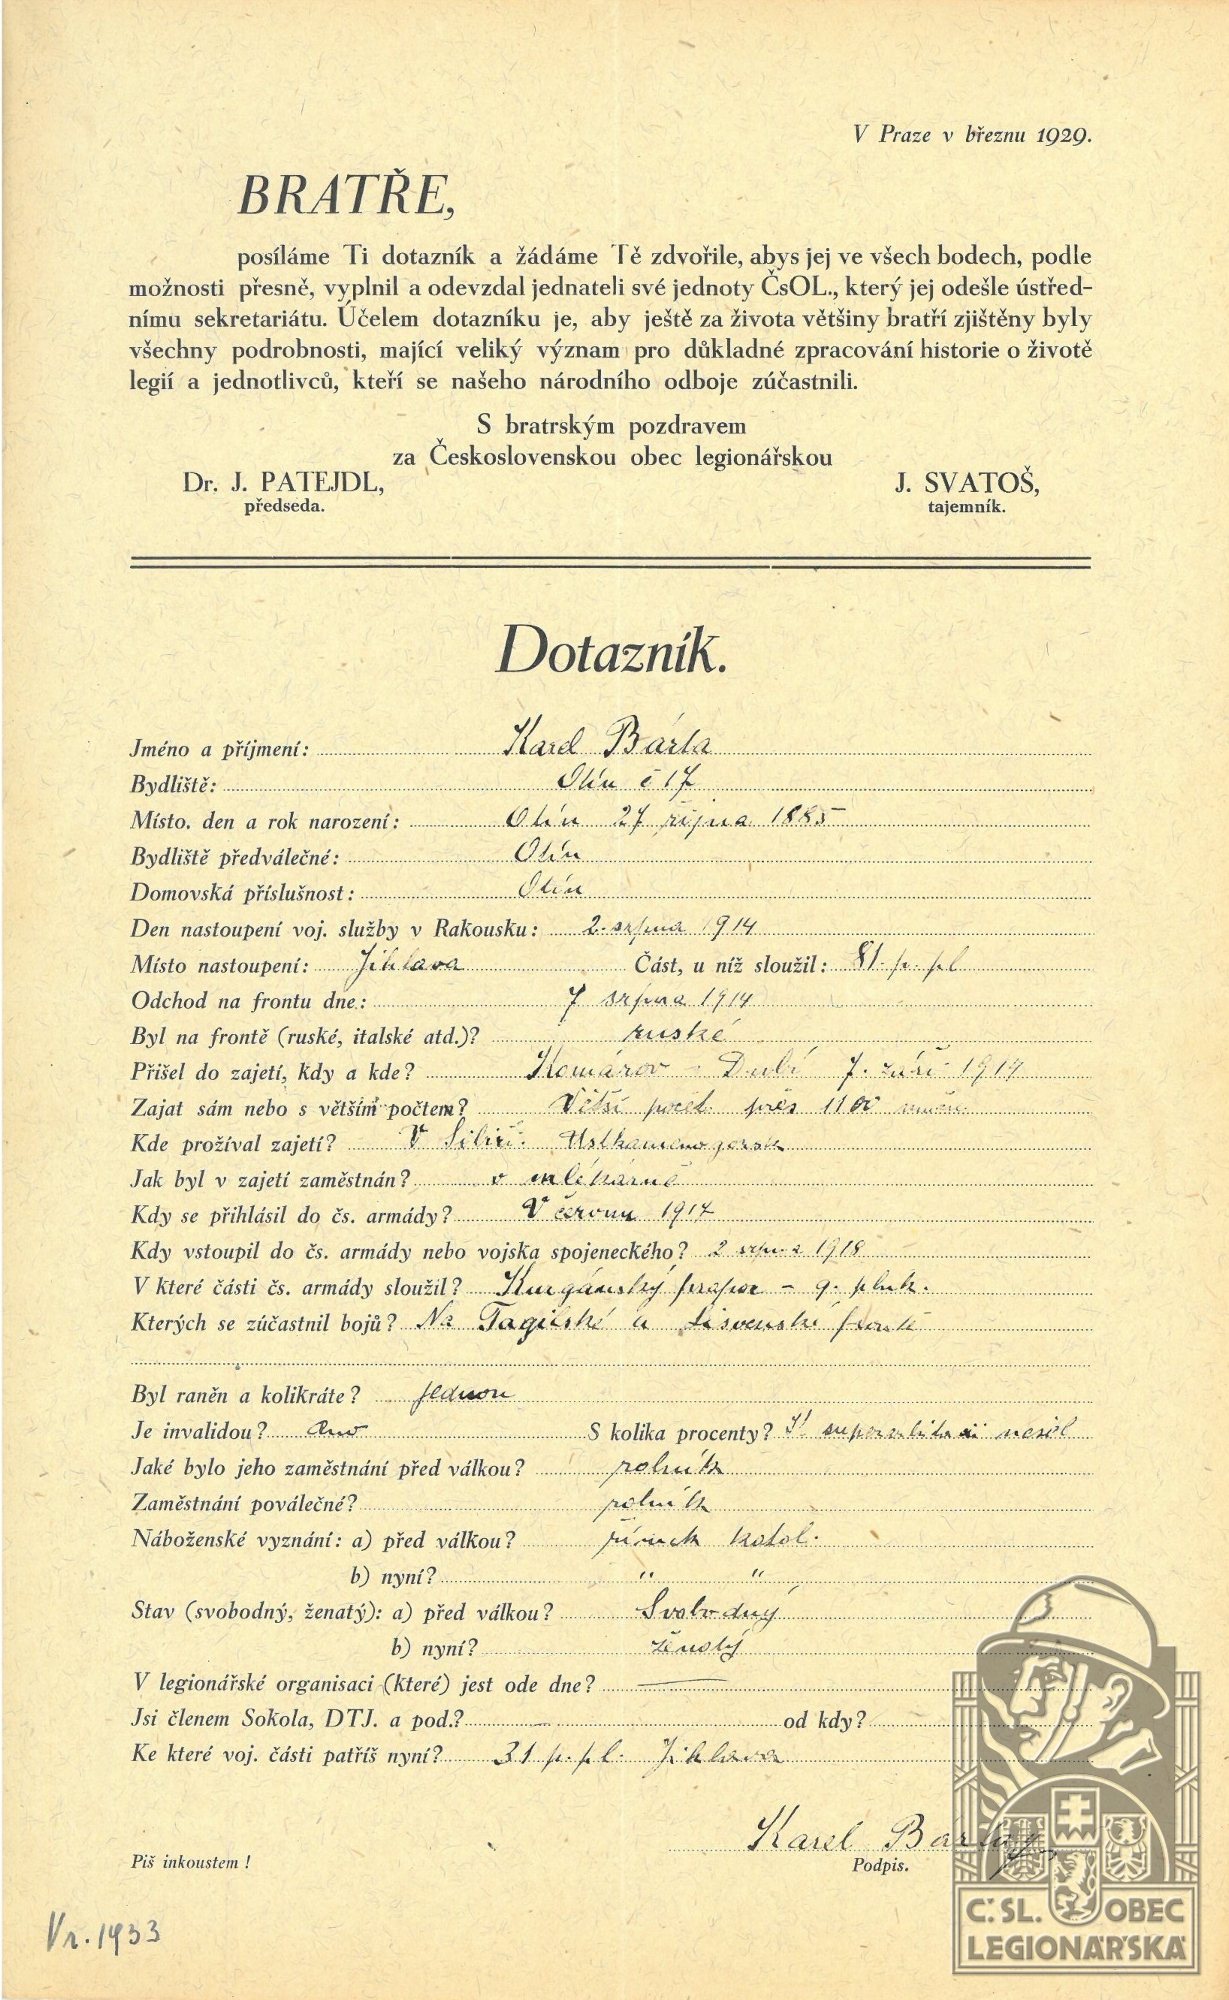 V Praze v březnu 1929.
BRATŘE,
posíláme Ti dotazník a žádáme Tě zdvořile, abys jej ve všech bodech, podle
možnosti přesně, vyplnil a odevzdal jednateli své jednoty ČsOL., který jej odešle ústřed-
nímu sekretariátu. Účelem dotazníku je, aby ještě za života většiny bratří zjištěny byly
všechny podrobnosti, mající veliký význam pro důkladné zpracování historie o životě
legií a jednotlivců, kteří se našeho národního odboje zúčastnili.
S bratrským pozdravem
za Československou obec legionářskou
Dr. J. PATEJDL, J. SVATOŠ,
předseda. tajemník.
Dotazník.
Jméno a příjmení: Karel Bárta
Bydliště: Olín č 17
Místo. den a rok narození: Olín 27 října 1885
Bydliště předválečné: Olín
Domovská příslušnost: Olín
Den nastoupení voj. služby v Rakousku: 2. srpna 1914
Místo nastoupení: Jihlava Část, u níž sloužil: 81. p. pl
Odchod na frontu dne: 7 srpna 1914
Byl na frontě (ruské, italské atd.)? ruské
Přišel do zajetí, kdy a kde? Komárov - Dubí 7. září 1914
Zajat sám nebo s větším počtem? Větší počet přes 1100
Kde prožíval zajetí? V Sibiři. Ustkamenogorsk
Jak byl v zajetí zaměstnán? v mlékárně
Kdy se přihlásil do čs. armády? V červnu 1917
Kdy vstoupil do čs. armády nebo vojska spojeneckého? 2 srpna 1918
V které části čs. armády sloužil? Kurgánský prapor - 9. pluk.
Kterých se zúčastnil bojů? Na Tagilské a Lisvenské frontě
Byl raněn a kolikráte? jednou
Je invalidou? Ano S kolika procenty?
Jaké bylo jeho zaměstnání před válkou? rolník
Zaměstnání poválečné? rolník
Náboženské vyznání: a) před válkou? římsk katol.
b) nyní? " "
Stav (svobodný, ženatý): a) před válkou? Svobodný
b) nyní? ženatý
V legionářské organisaci (které) jest ode dne? —
Jsi členem Sokola, DTJ. a pod.? — od kdy?
Ke které voj. části patříš nyní? 31 p. pl. Jihlava
Karel Bárta
Piš inkoustem! Podpis.
Vr. 1933
Č. SL. OBEC
LEGIONÁŘSKÁ